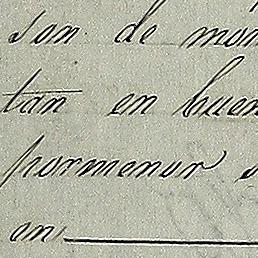 son de mon
tan en buen
pormenor
en